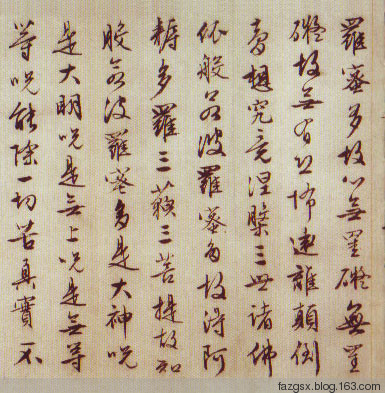 羅蜜多故心無罣礙無罣
礙故無有恐怖遠離顛倒
夢想究竟涅槃三世諸佛
依般若波羅蜜多故得阿
耨多羅三藐三菩提故知
般若波羅蜜多是大神呪
是大明呪是無上呪是無等
等呪能除一切苦真實不
fazgsx.blog.163.com